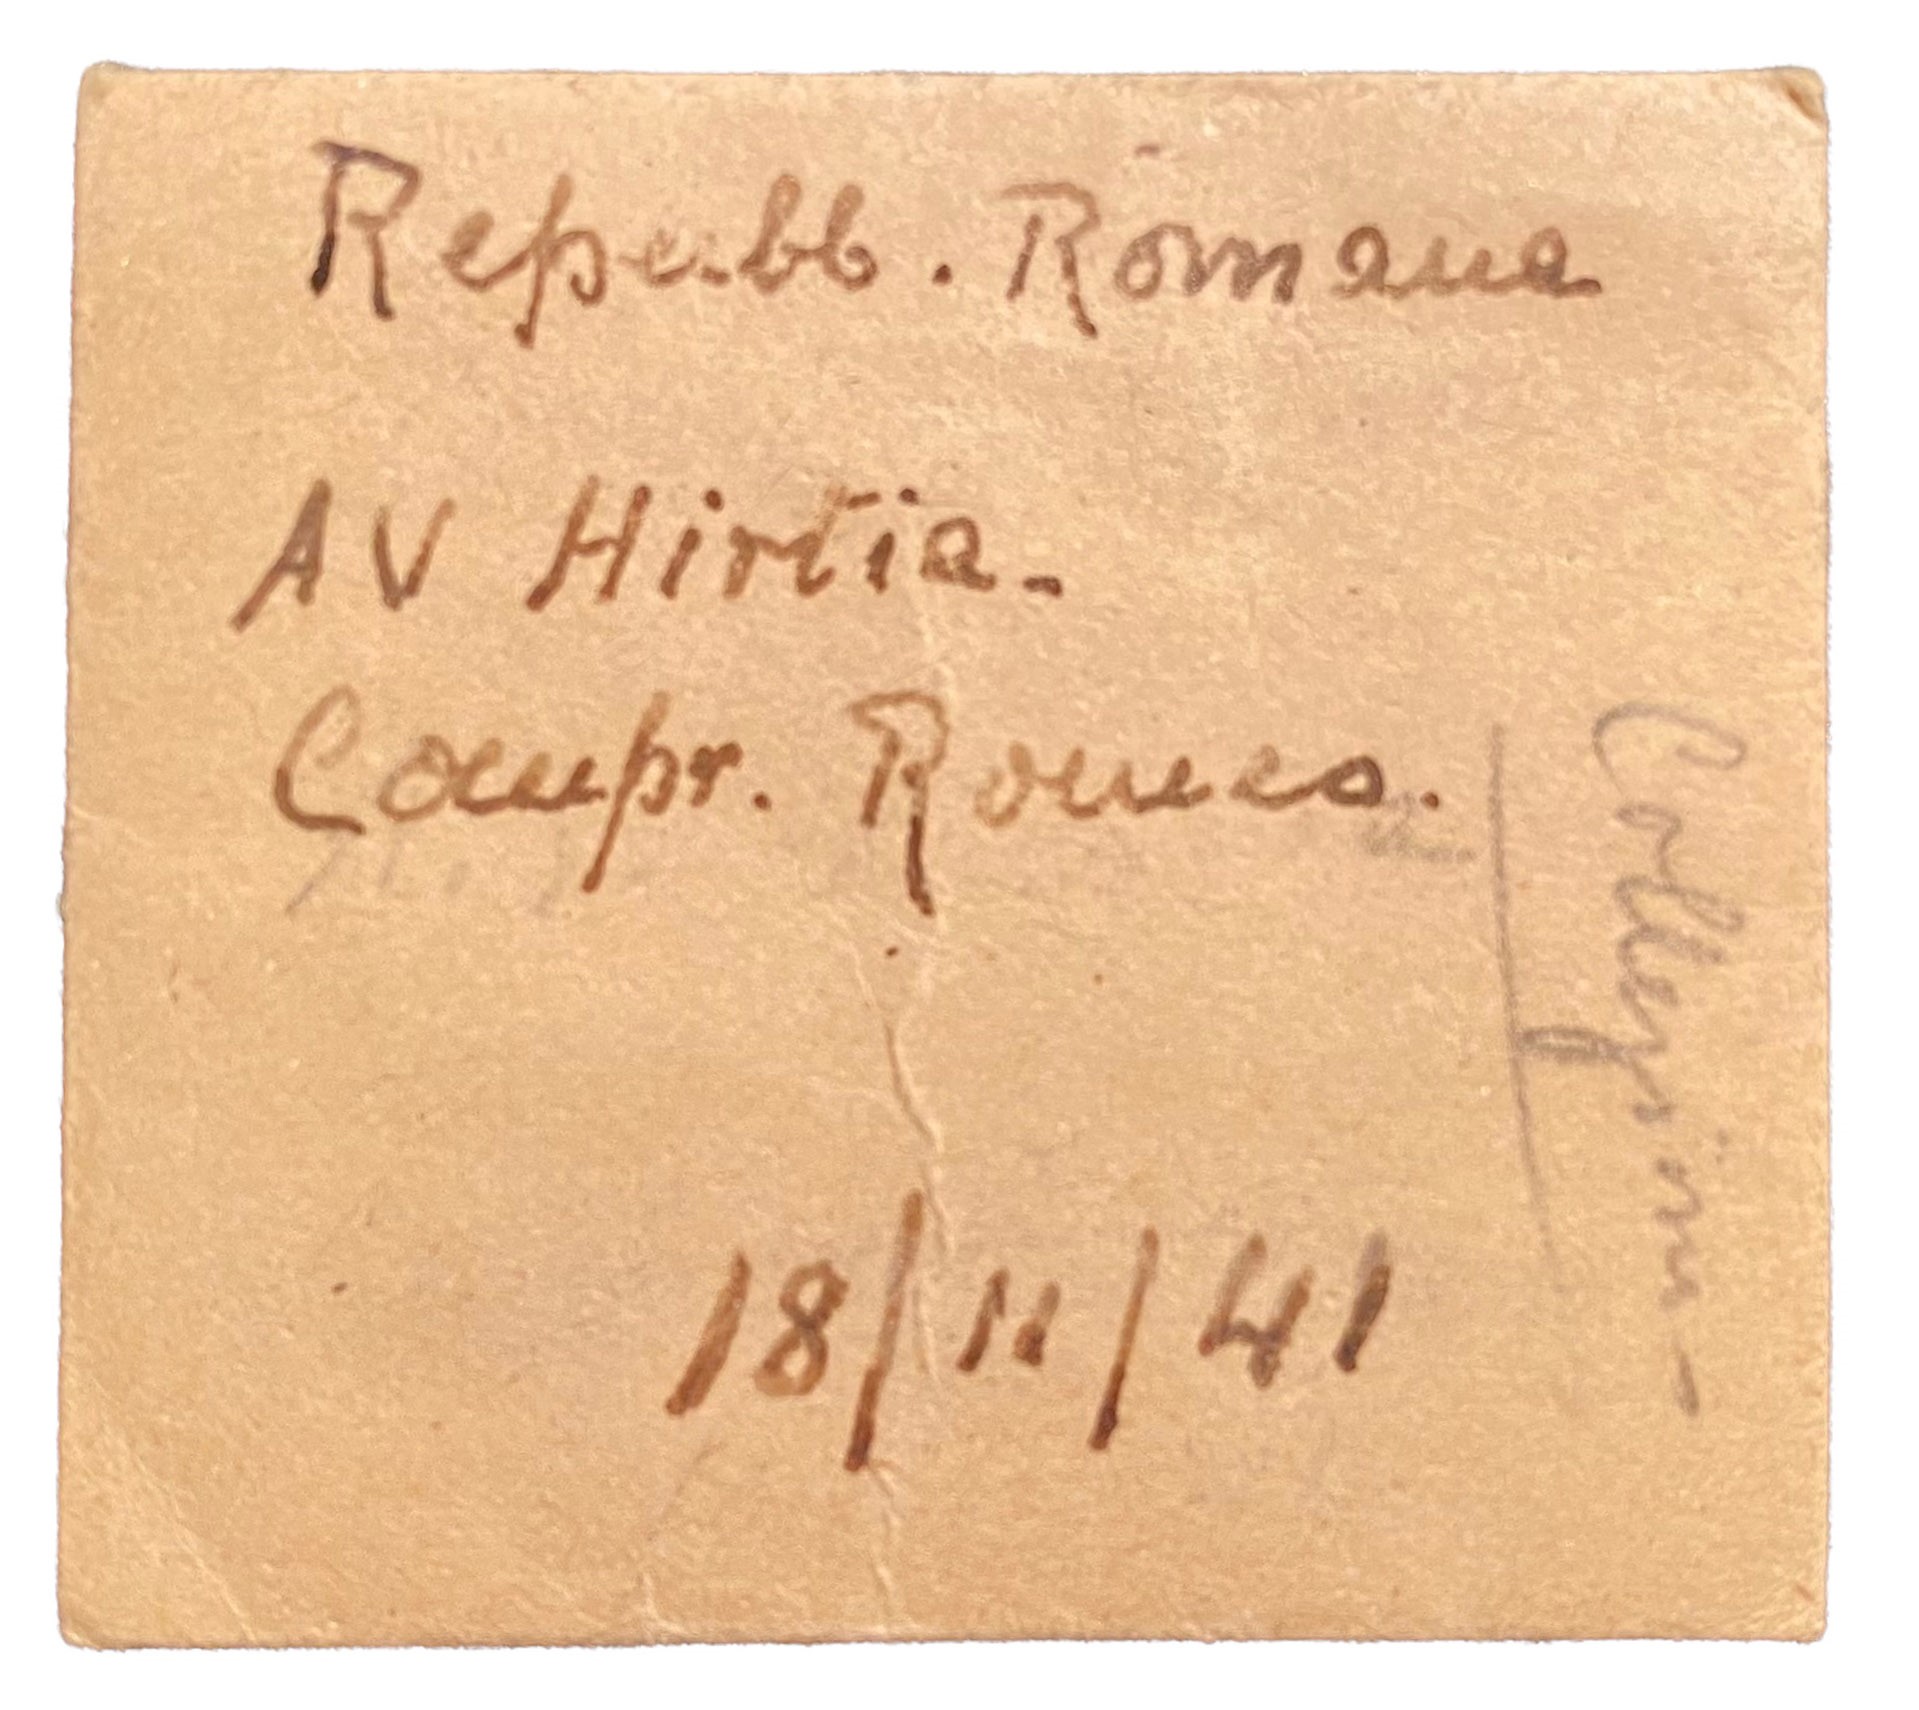 Repubb. Romana
AV Hirtia -
Compr. Romeo.
18/11/41